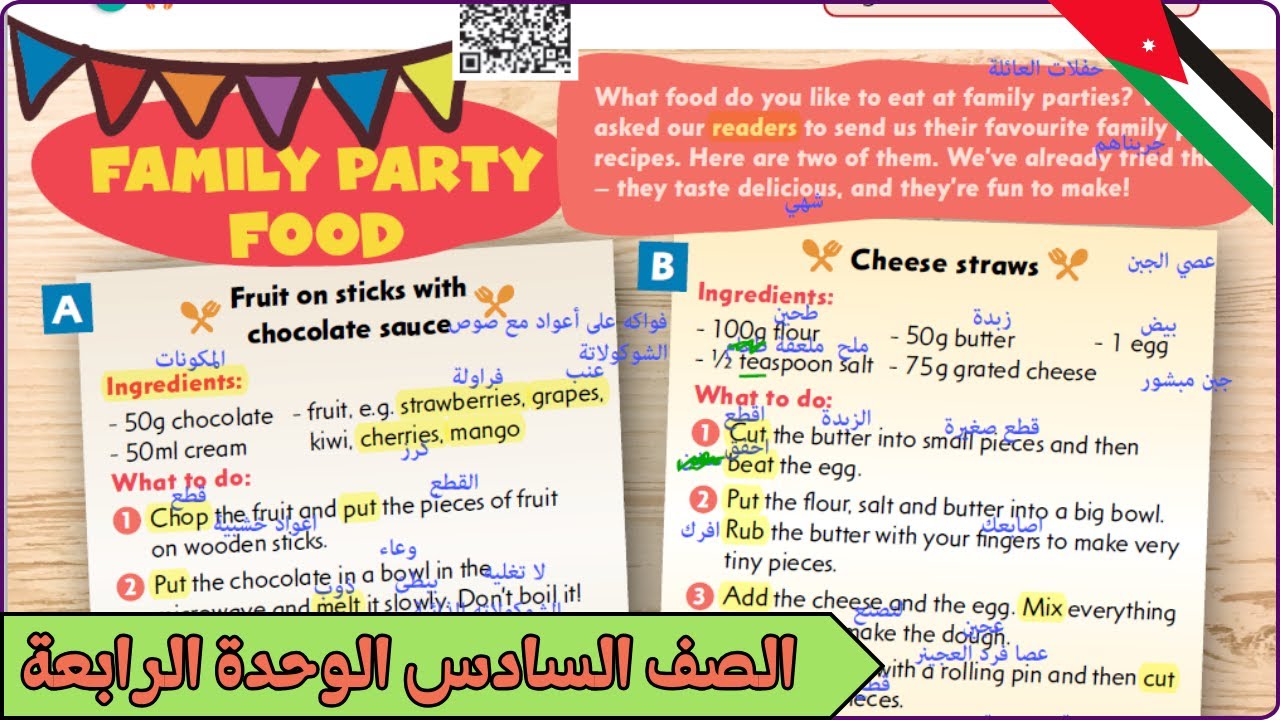 FAMILY PARTY
FOOD
حفلات العائلة
What food do you like to eat at family parties?
asked our readers to send us their favourite family
جربناهم
recipes. Here are two of them. We've already tried
– they taste delicious, and they're fun to make!
شهي
A
Fruit on sticks with
chocolate sauce
فواكه على أعواد مع صوص
الشوكولاتة
المكونات
Ingredients:
فراولة
عنب
- 50g chocolate
- fruit, e.g. strawberries, grapes,
- 50ml cream
kiwi, cherries, mango
كرز
What to do:
قطع
القطع
1 Chop the fruit and put the pieces of fruit
اعواد خشبية
on wooden sticks.
وعاء
2 Put the chocolate in a bowl in the
لا تغليه
ذوب
microwave and melt it slowly. Don't boil it!
B
Cheese straws
عصي الجبن
Ingredients:
طحين
زبدة
بيض
- 100g flour
- 50g butter
- 1 egg
ملح
ملعقة
- ½ teaspoon salt
- 75g grated cheese
جبن مبشور
What to do:
اقطع
الزبدة
قطع صغيرة
1 Cut the butter into small pieces and then
احفق
beat the egg.
2 Put the flour, salt and butter into a big bowl.
افرك
اصابعك
Rub the butter with your fingers to make very
tiny pieces.
3 Add the cheese and the egg. Mix everything
لتصنع
عجين
make the dough.
عصا فرد العجين
with a rolling pin and then cut
قطع
pieces.
الصف السادس الوحدة الرابعة